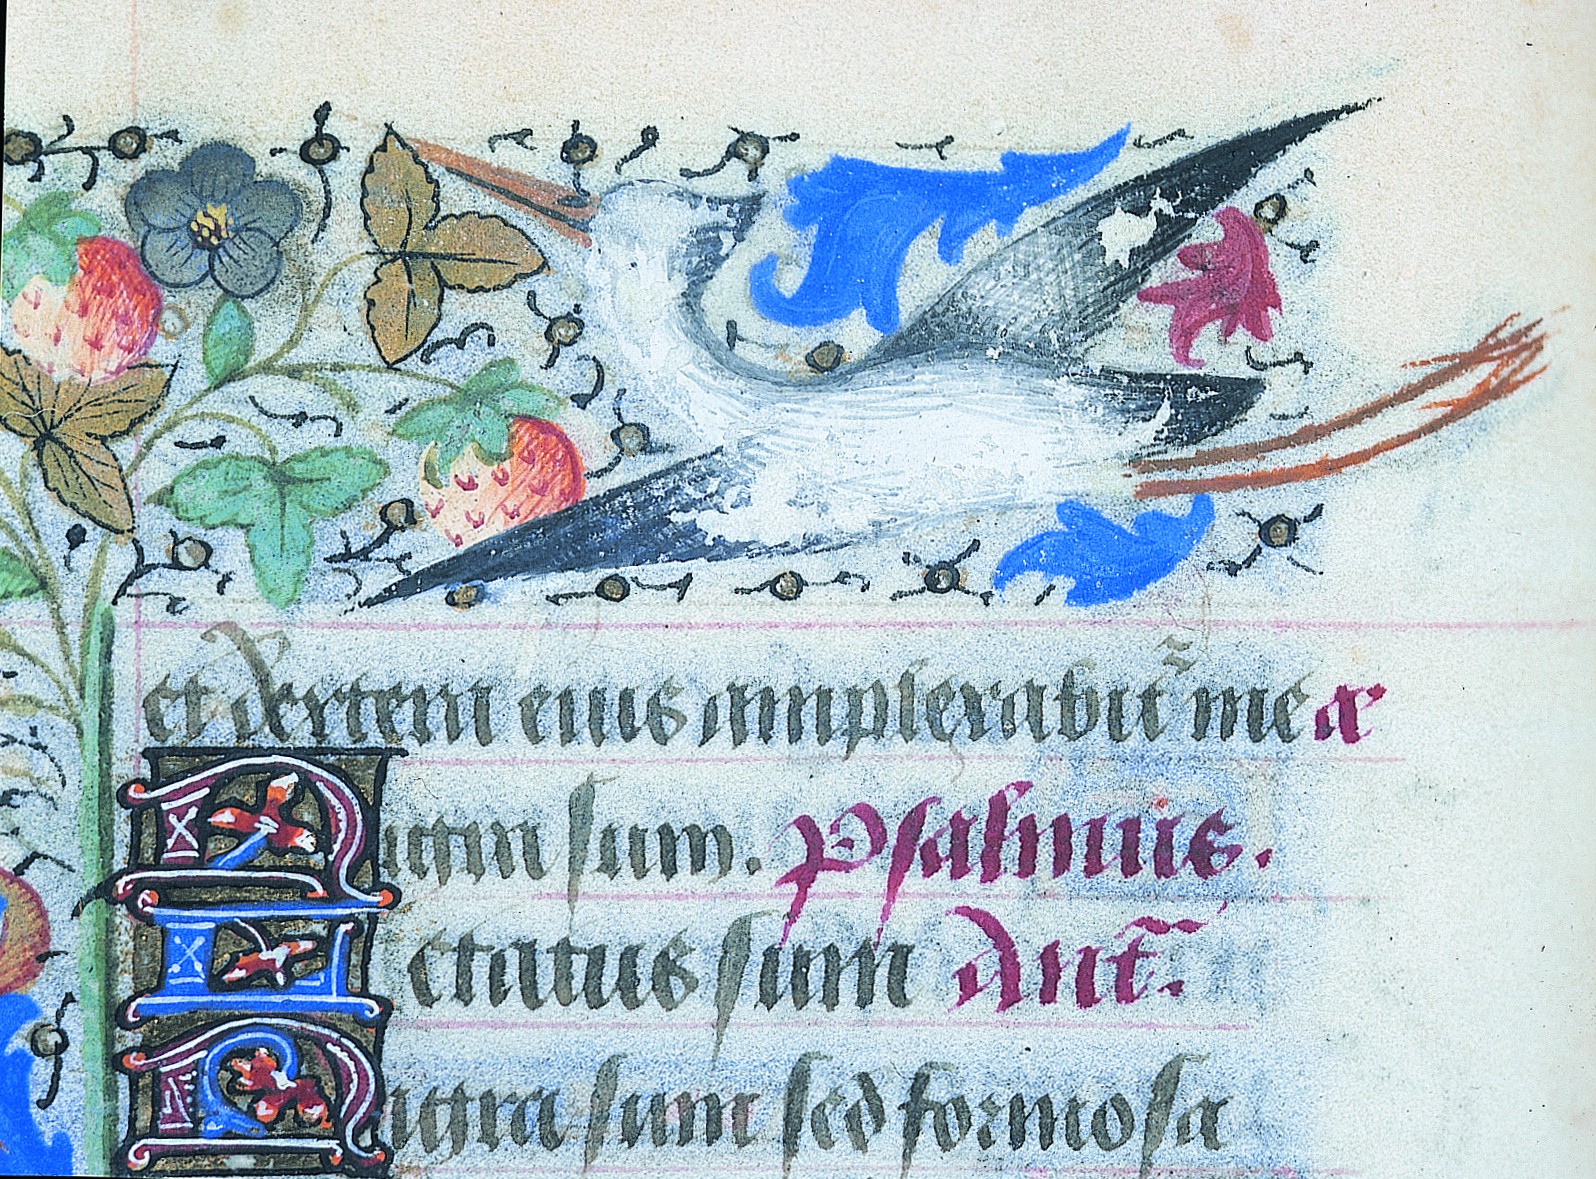 et dextera eius amplexabit̃ me a
Nigra sum. Psalmus.
Letatus sum Ant̃.
Nigra sum sed formosa